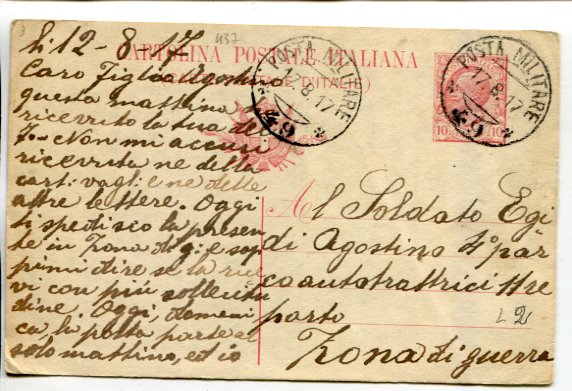 Li 12-8-17
437
CARTOLINA POSTALE ITALIANA
(CARTE POSTALE D'ITALIE)
POSTA MILITARE
17.8.17
49
POSTA MILITARE
17.8.17
49
10 10
Caro Figlio Agostino
questa mattina
ricevuto la tua del
Non mi accusi
ricevuta ne della
cart: vagli: e ne delle
altre lettere. Oggi
ti spedisco la presen
te in Zona di g. e sap
pimi dire se la rice
vi con più sollecitu
dine. Oggi, domeni
ca, la posta parte al
solo mattino, ed io
Al Soldato Egi
di Agostino 4° par
co autotrattrici II re
parto
Zona di guerra
L 2